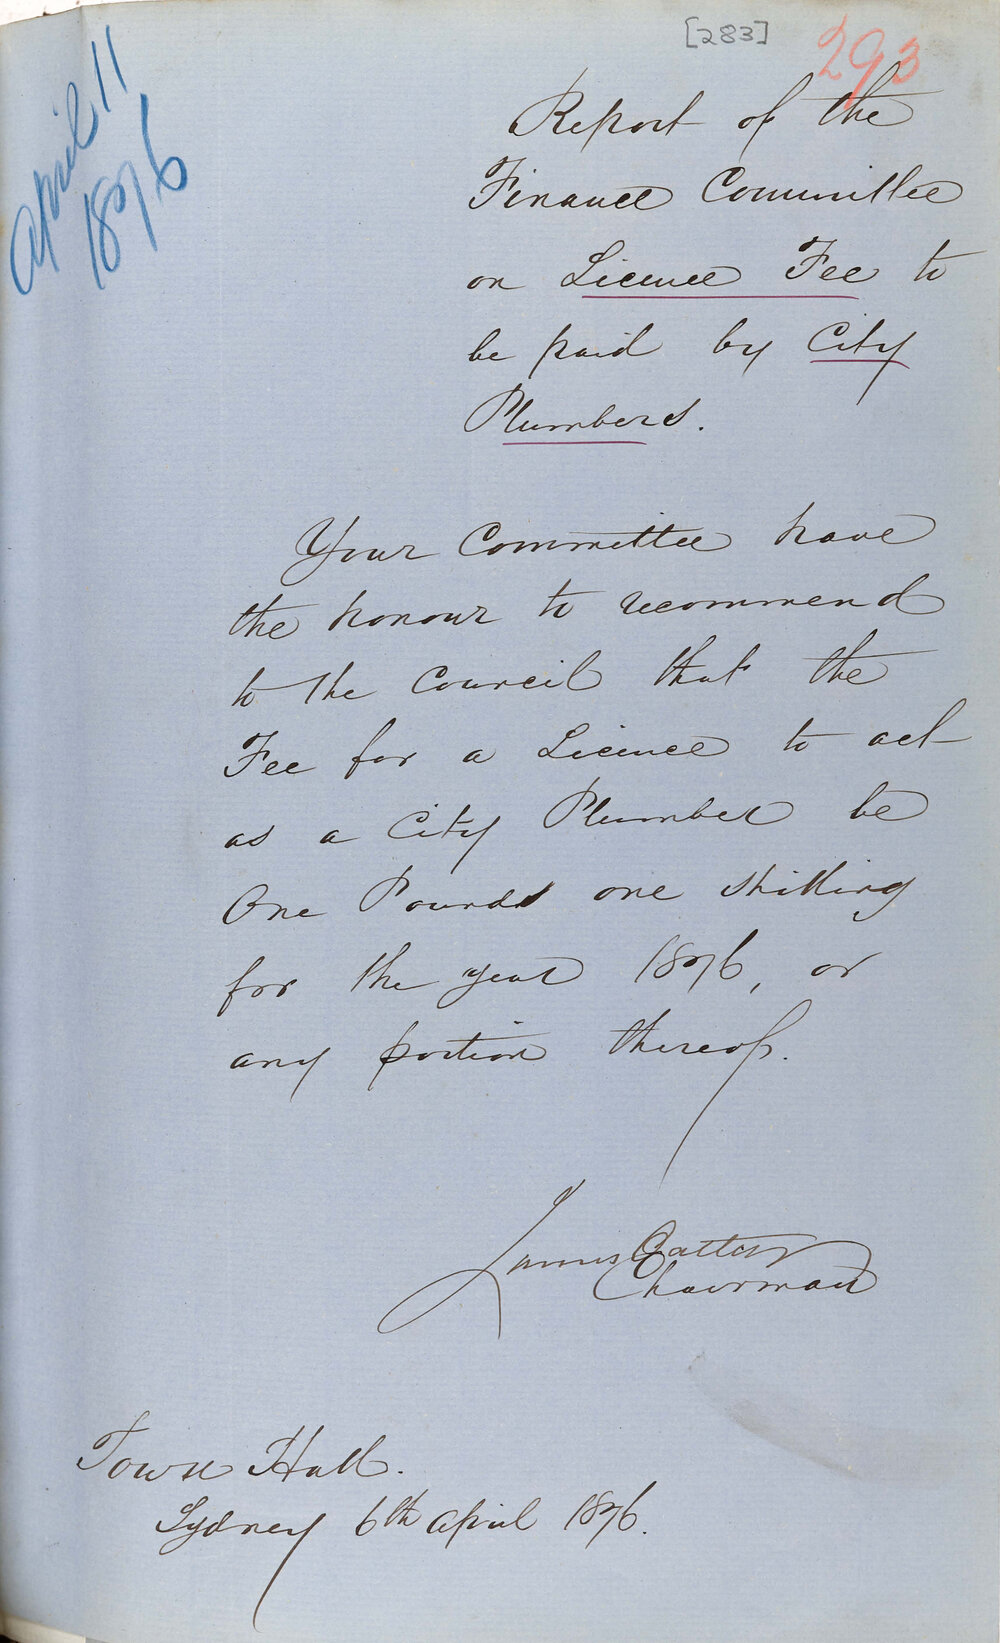 [283]
293
April 11
1876
Report of the
Finance Committee
on Licence Fee to
be paid by City
Plumbers.
Your Committee have
the honour to recommend
to the Council that the
Fee for a Licence to act
as a City Plumber be
One Pounds one shilling
for the year 1876, or
any portion thereof.
James
Chairman
Town Hall.
Sydney 6th April 1876.